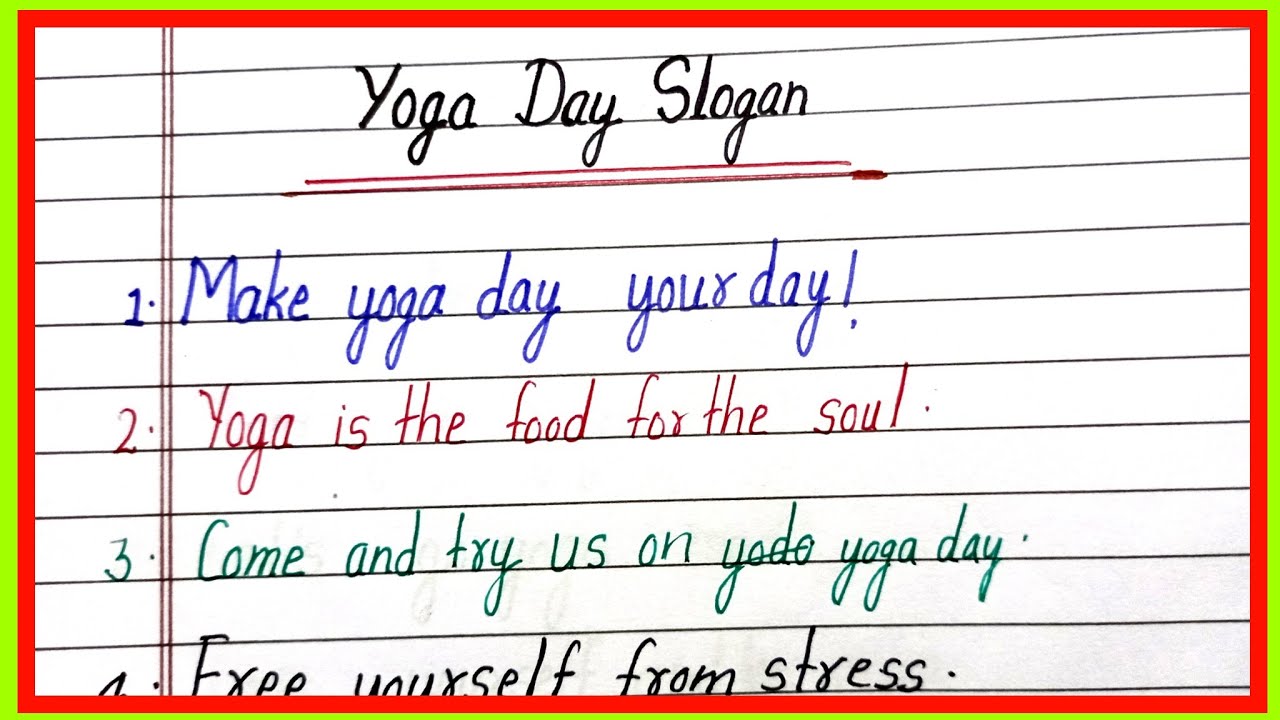 Yoga Day Slogan
1. Make yoga day your day!
2. Yoga is the food for the soul.
3. Come and try us on yodo yoga day.
4. Free yourself from stress.